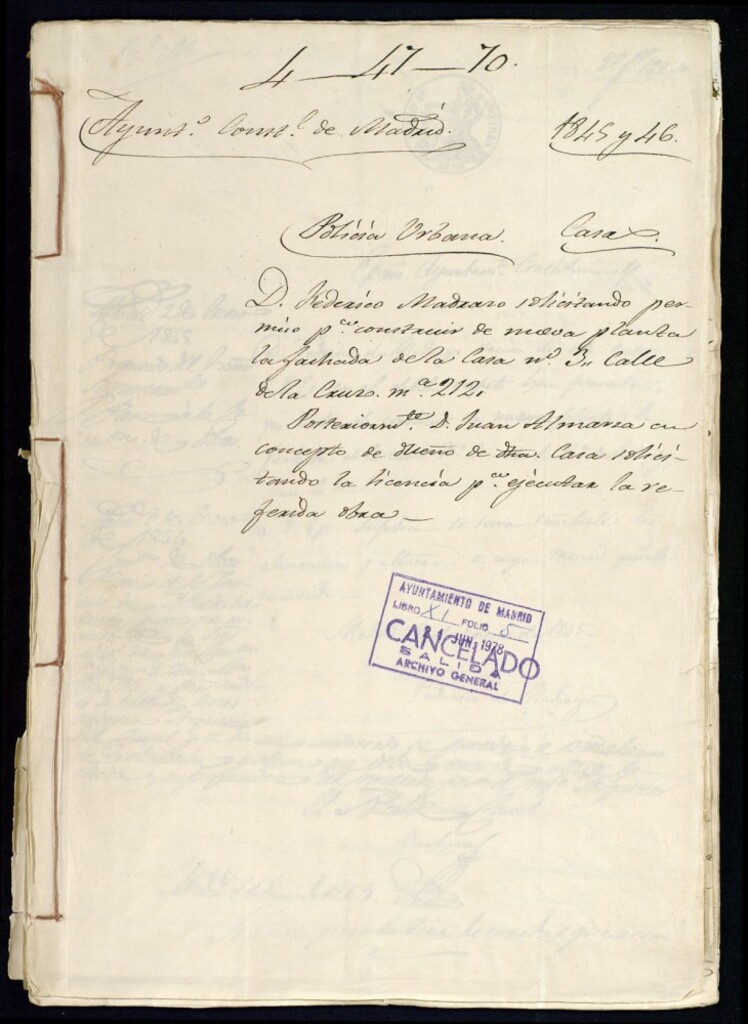 4—47—70.
Ayunt.º Const.l de Madrid. 1845 y 46.
Policia Urbana. Casas.
D. Federico Madrazo solicitando per-
miso p.ª construir de nueva planta
la fachada de la Casa nº 3,, Calle
de la Cruz. m.ª 212.
Posteriorm.te D. Juan Almansa en
concepto de dueño de dha. Casa solici-
tando la licencia p.ª ejecutar la re-
ferida obra—
AYUNTAMIENTO DE MADRID
LIBRO XI FOLIO 5
21 JUN. 1978
CANCELADO
SALIDA
ARCHIVO GENERAL